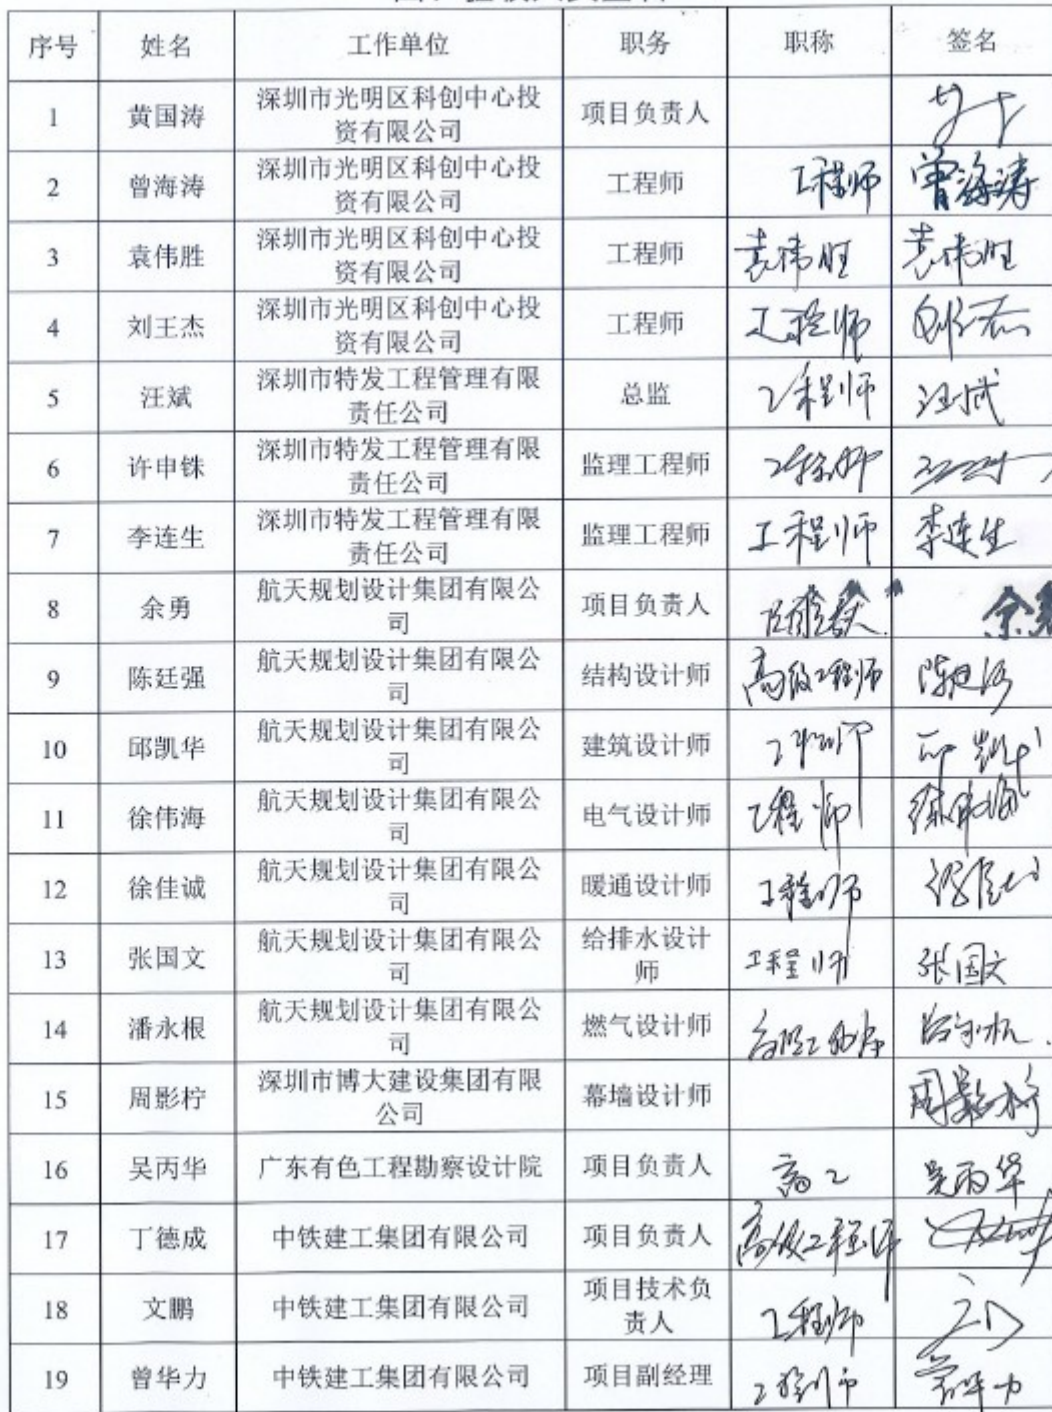 序号 姓名 工作单位 职务 职称 签名
1 黄国涛 深圳市光明区科创中心投 项目负责人
资有限公司
2 曾海涛 深圳市光明区科创中心投 工程师 工程师 曾海涛
资有限公司
3 袁伟胜 深圳市光明区科创中心投 工程师 袁伟胜 袁伟胜
资有限公司
4 刘王杰 深圳市光明区科创中心投 工程师 工程师
资有限公司
5 汪斌 深圳市特发工程管理有限 总监 工程师 汪斌
责任公司
6 许申铢 深圳市特发工程管理有限 监理工程师 工程师
责任公司
7 李连生 深圳市特发工程管理有限 监理工程师 工程师 李连生
责任公司
8 余勇 航天规划设计集团有限公 项目负责人 余勇
司
9 陈廷强 航天规划设计集团有限公 结构设计师 高级工程师 陈廷强
司
10 邱凯华 航天规划设计集团有限公 建筑设计师 工程师 邱凯华
司
11 徐伟海 航天规划设计集团有限公 电气设计师 工程师 徐伟海
司
12 徐佳诚 航天规划设计集团有限公 暖通设计师 工程师
司
13 张国文 航天规划设计集团有限公 给排水设计 工程师 张国文
司 师
14 潘永根 航天规划设计集团有限公 燃气设计师 高级工程师
司
15 周影柠 深圳市博大建设集团有限 幕墙设计师 周影柠
公司
16 吴丙华 广东有色工程勘察设计院 项目负责人 高工 吴丙华
17 丁德成 中铁建工集团有限公司 项目负责人 高级工程师
18 文鹏 中铁建工集团有限公司 项目技术负 工程师
责人
19 曾华力 中铁建工集团有限公司 项目副经理 工程师 曾华力